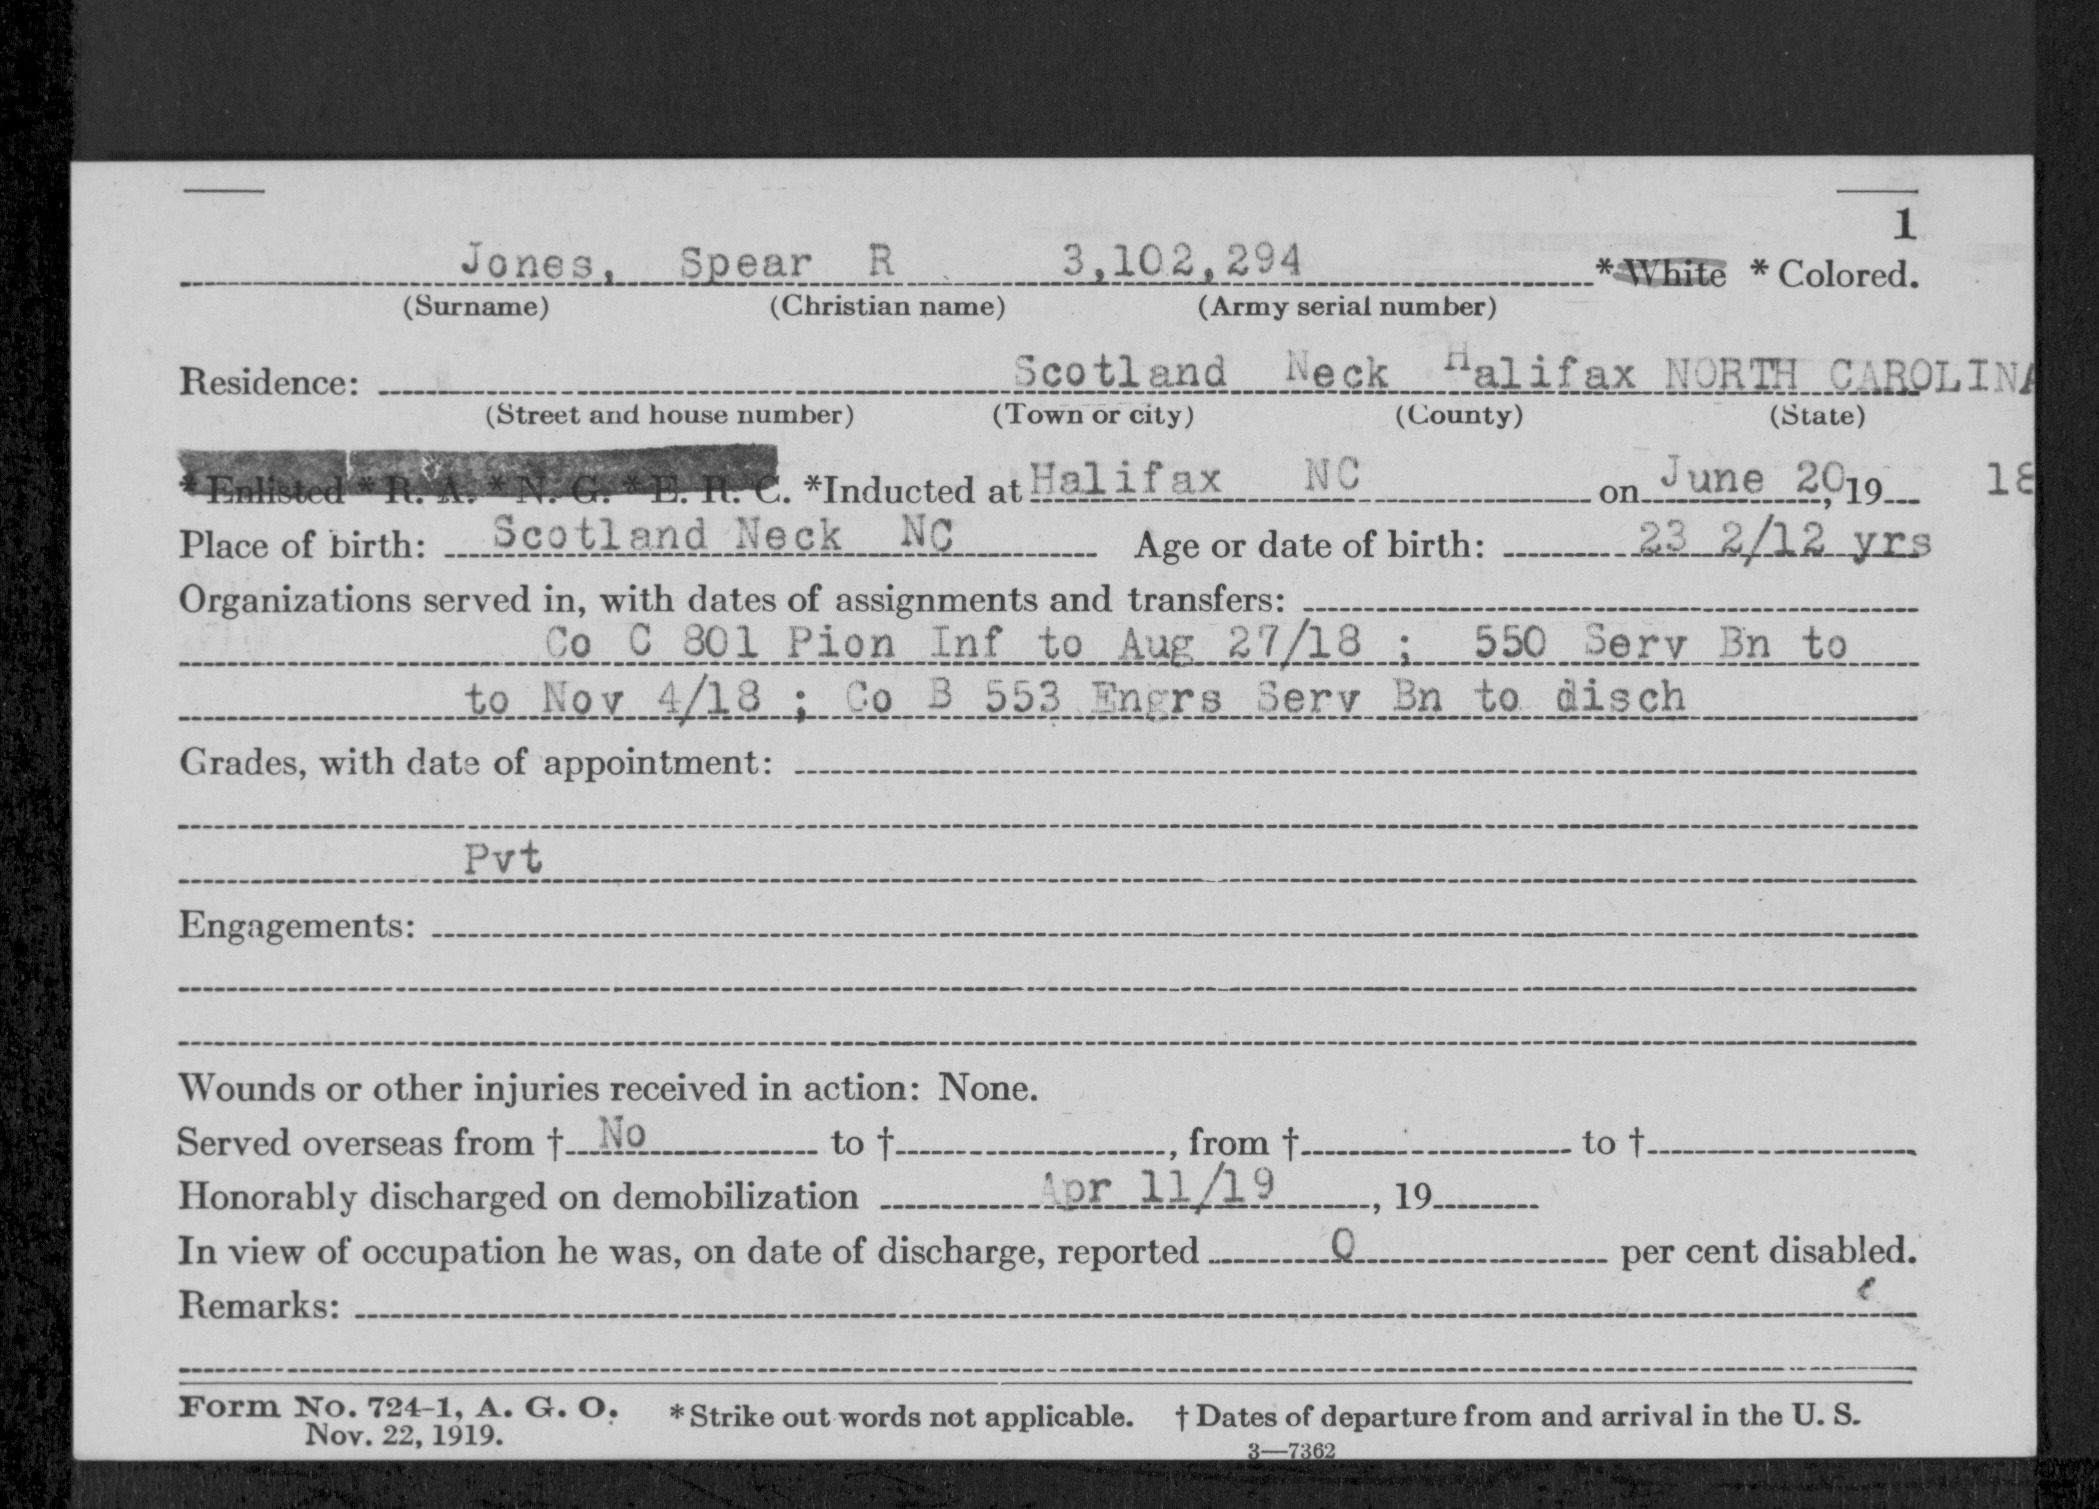 1
Jones, Spear R 3,102,294 * White * Colored.
(Surname) (Christian name) (Army serial number)
Residence: Scotland Neck Halifax NORTH CAROLINA
(Street and house number) (Town or city) (County) (State)
* Enlisted * R. A. * N. G. * E. R. C. *Inducted at Halifax NC on June 20, 19 18
Place of birth: Scotland Neck NC Age or date of birth: 23 2/12 yrs
Organizations served in, with dates of assignments and transfers:
Co C 801 Pion Inf to Aug 27/18 ; 550 Serv Bn to
to Nov 4/18 ; Co B 553 Engrs Serv Bn to disch
Grades, with date of appointment:
Pvt
Engagements:
Wounds or other injuries received in action: None.
Served overseas from † No to † , from † to †
Honorably discharged on demobilization Apr 11/19 , 19
In view of occupation he was, on date of discharge, reported 0 per cent disabled.
Remarks:
Form No. 724-1, A. G. O. * Strike out words not applicable. † Dates of departure from and arrival in the U. S.
Nov. 22, 1919.
3—7362